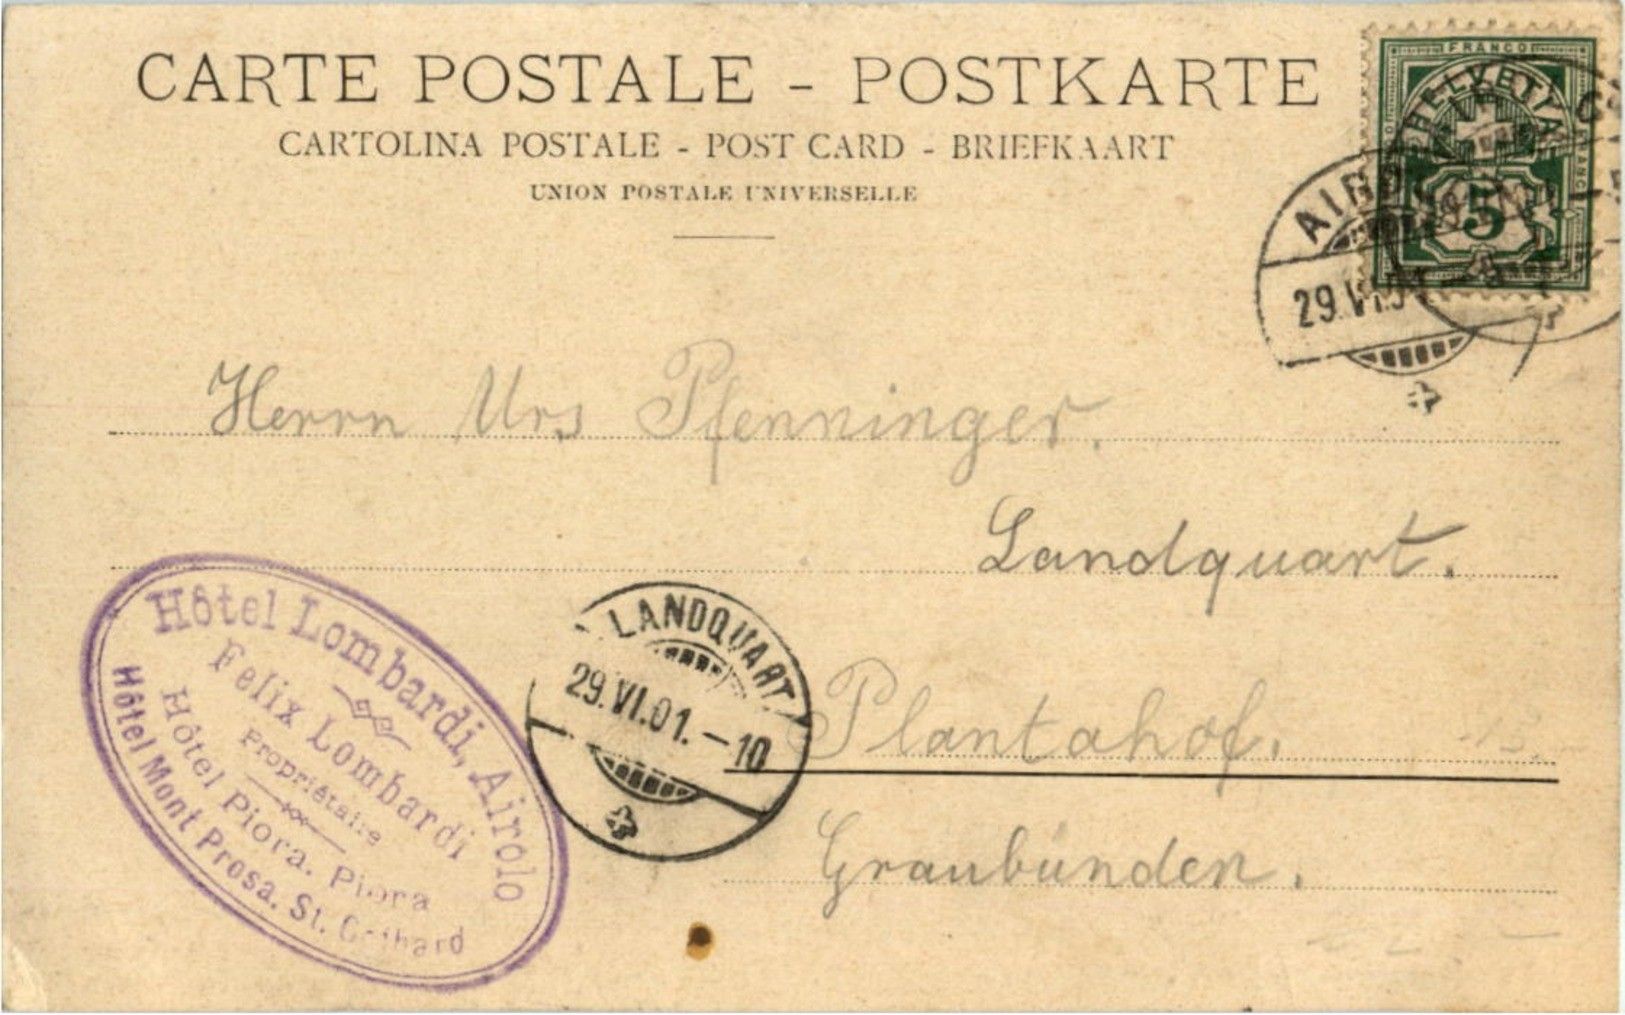 CARTE POSTALE - POSTKARTE
CARTOLINA POSTALE - POST CARD - BRIEFKAART
UNION POSTALE UNIVERSELLE
FRANCO
HELVETIA
5
29.VI.01
Herrn Urs Pfenninger.
Landquart.
Plantahof.
Graubünden.
LANDQUART
29.VI.01.-10
Hôtel Lombardi, Airolo
Felix Lombardi
Propriétaire
Hôtel Piora. Piora
Hôtel Mont Prosa. St. Gothard